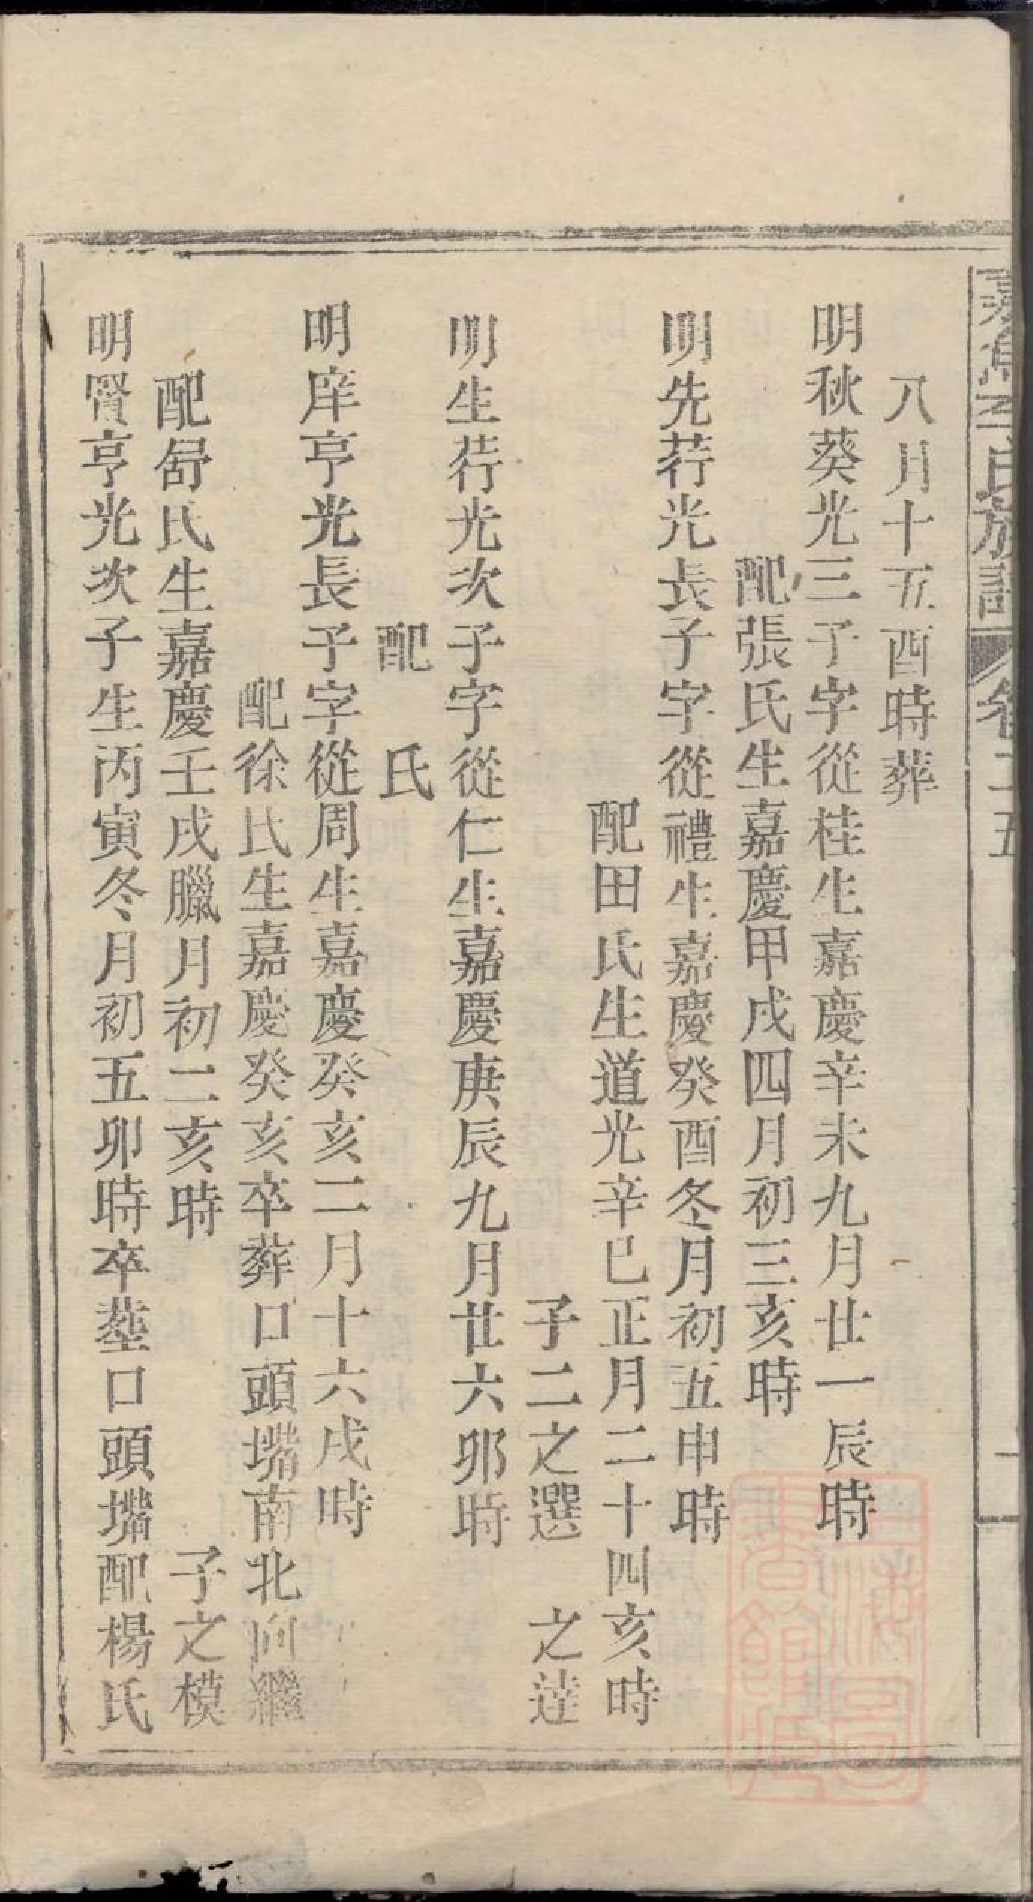 嘉魚李氏族譜 卷二五
八月十五酉時葬
明秋葵光三子字從桂生嘉慶辛未九月廿一辰時
配張氏生嘉慶甲戌四月初三亥時
明先荇光長子字從禮生嘉慶癸酉冬月初五申時
配田氏生道光辛巳正月二十四亥時
子二之選 之達
明生荇光次子字從仁生嘉慶庚辰九月廿六卯時
配 氏
明庠亨光長子字從周生嘉慶癸亥二月十六戌時
配徐氏生嘉慶癸亥卒葬口頭墈南北向繼
配舒氏生嘉慶壬戌臘月初二亥時 子之模
明賢亨光次子生丙寅冬月初五卯時卒塟口頭嘴配楊氏